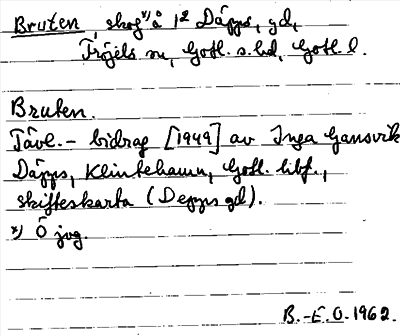 Bruten, skog x) å 1² Däpps, gd,
Fröjels sn, Gotl. s. hd, Gotl. l.
Bruten.
Tävl.- bidrag [1949] av Inga Gansvik
Däpps, Klintehamn, Gotl. tibf.,
skifteskarta (Depps gd).
x) Ö jvg.
B.-E. O. 1962.